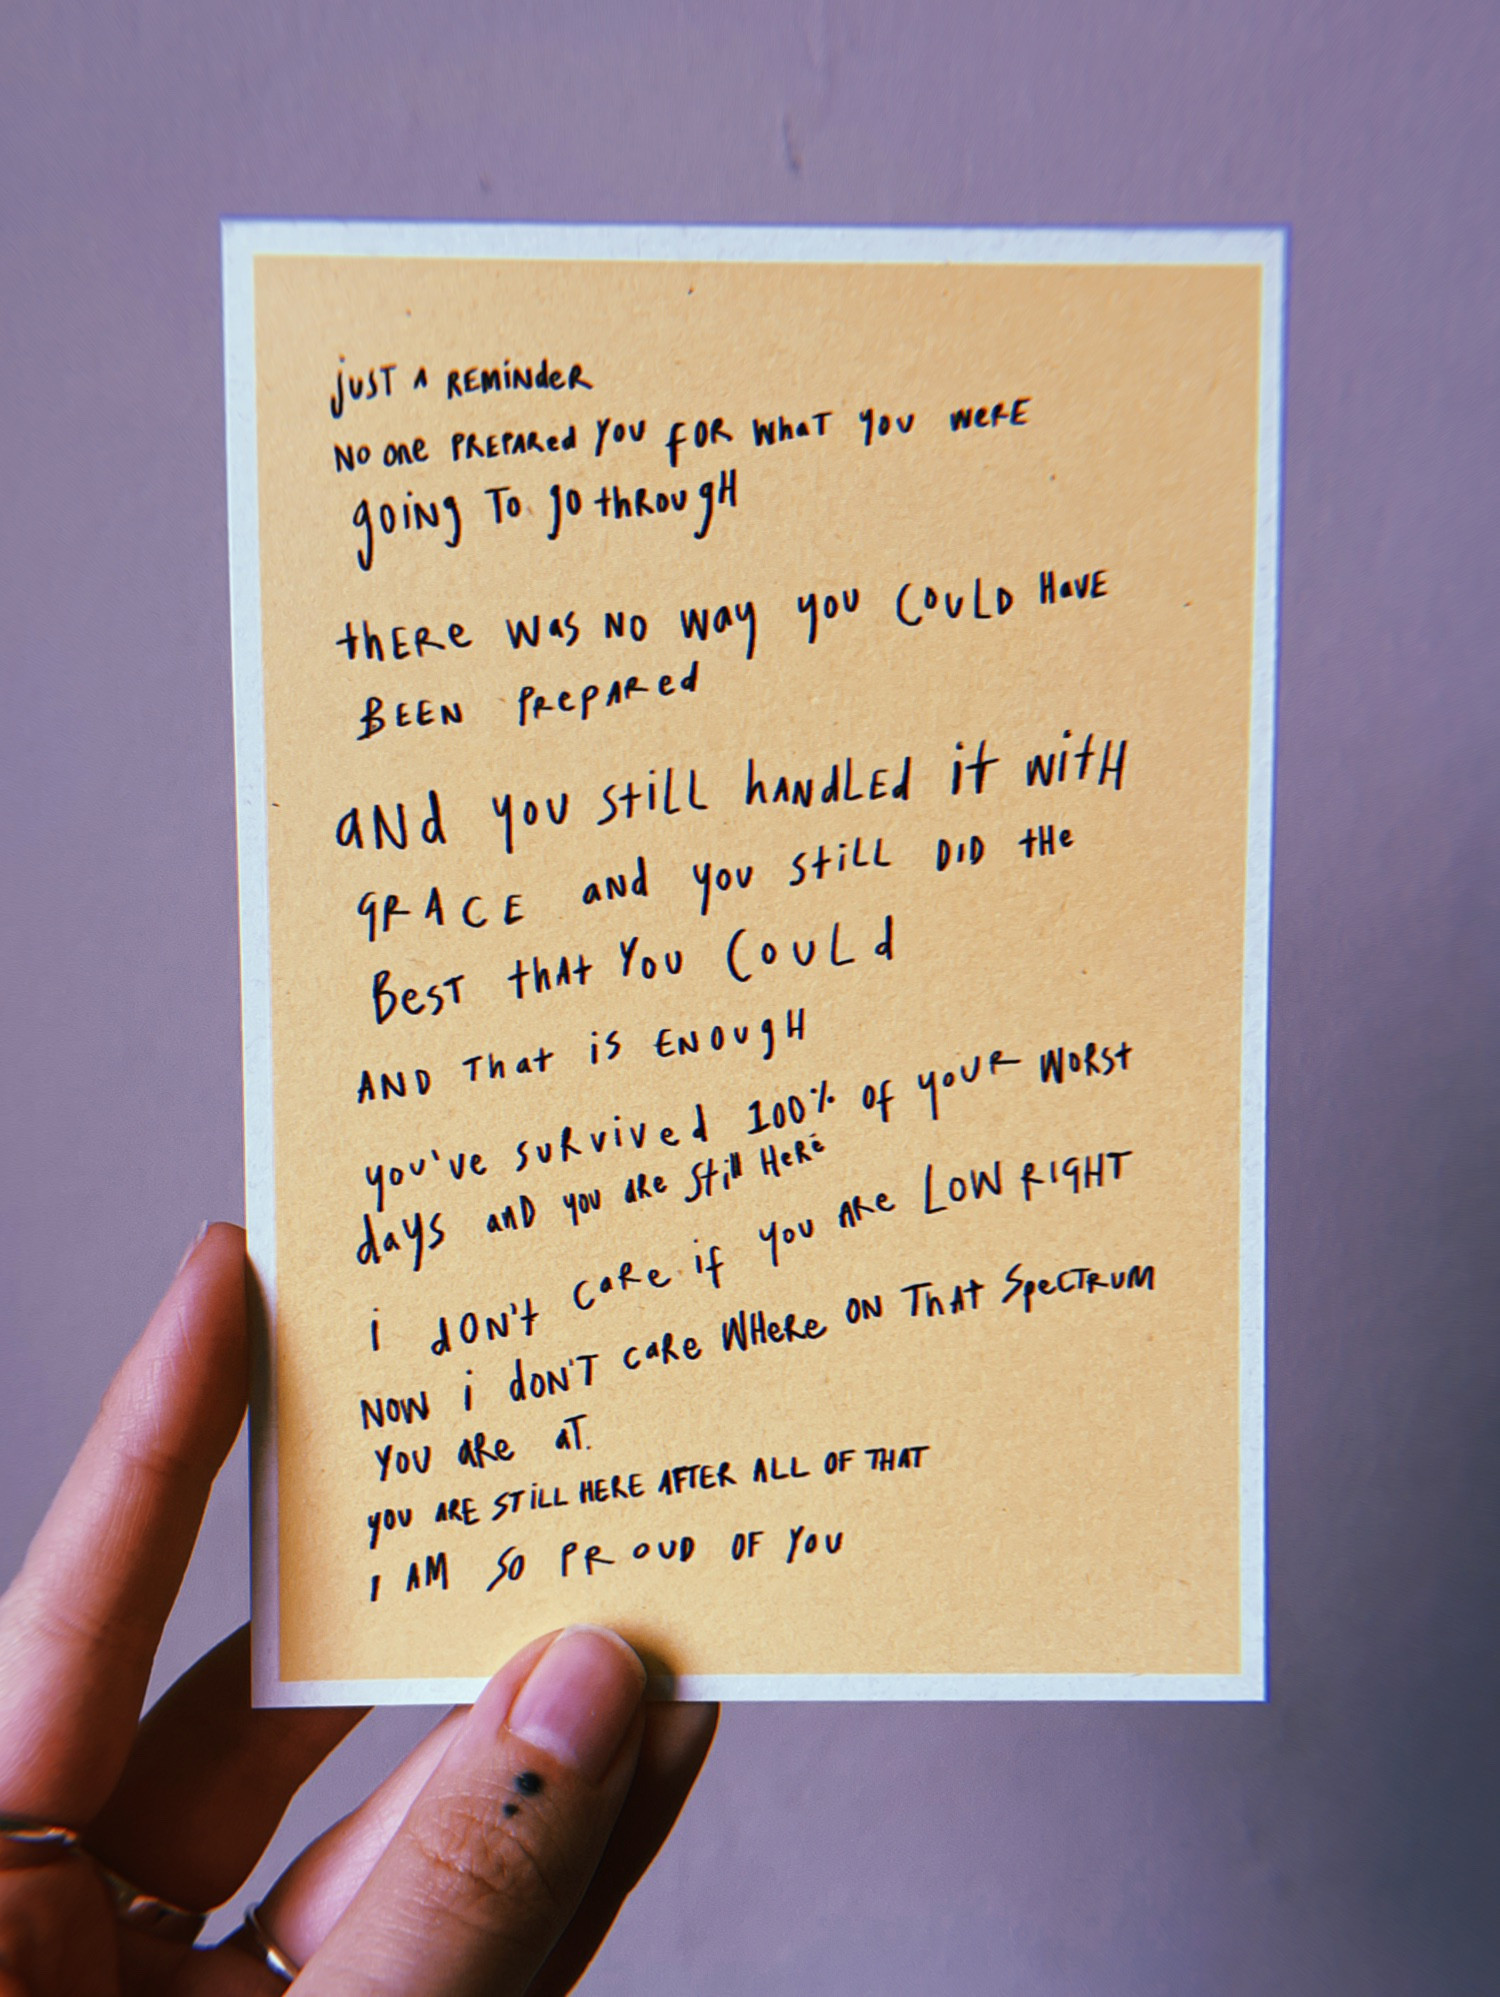 jUST A REMiNdeR
No one PREPARed YOU fOR WhaT YOU weRE
gOiNg To go thROUgH
thERe Was NO way YOU COULD HaVE
BEEN PRepARed
aNd YOU stiLL hANdLEd it witH
GRACE aNd YOU stiLL DID tHe
BesT thAt YOU COULd
AND That iS ENOUgH
YOU've suRvived 100% of YOUR WORSt
days anD YOU aRe Still HeRe
i dON't CaRe if YOU ARe LOW RIGHT
NOW i doN'T caRe WHeRe ON ThAt SpeCTRUM
YOU aRe aT.
YOU ARE STiLL HERE AFTER ALL OF THAT
I AM SO PROUD OF YOU